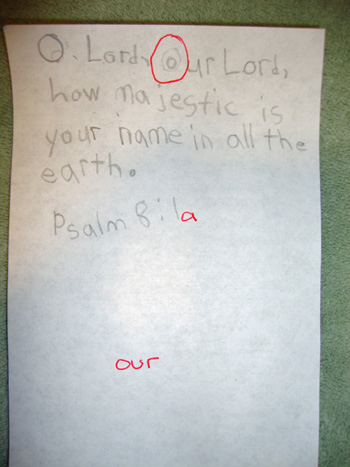 O. Lord, our Lord,
how majestic is
your name in all the
earth.
Psalm 8:1a
our